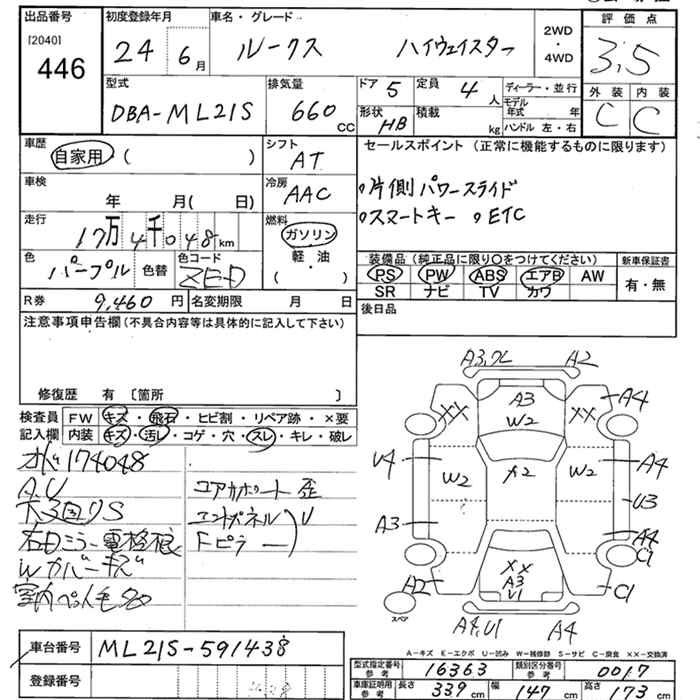 出品番号 [2040] 446
初度登録年月 24 6月
車名・グレード ルークス ハイウェイスター
2WD・4WD
評価点 3,5
外装 C 内装 C
型式 DBA-ML21S
排気量 660 CC
ドア 5
定員 4人
形状 HB
積載 kg
ディーラー・並行
モデル年式 年
ハンドル 左・右
車歴 自家用 ( )
シフト AT
車検 年 月( 日)
冷房 AAC
走行 17万4千048km
燃料 ガソリン 軽油 ・ ( )
色 パープル 色替 色コード ZED
R券 9,460円 名変期限 月 日
セールスポイント (正常に機能するものに限ります)
片側パワースライド
スマートキー ETC
装備品 (純正品に限り○をつけてください) 新車保証書
PS PW ABS エアB AW 有・無
SR ナビ TV カワ
後日品
注意事項申告欄 (不具合内容等は具体的に記入して下さい)
修復歴 有 〔箇所 〕
検査員 FW キズ・飛石・ヒビ割・リペア跡・×要
記入欄 内装 キズ・汚レ・コゲ・穴・スレ・キレ・破レ
174048
A.U
コアサポート 歪
下3回りS
エンドパネル U
右Dミラー電格
Fピラー
Wカバーキズ
A3,ワレ A2
A3 W2
XX XX A4
U4 W2 A2 W2 A4
U3
A3 A4
XX A3 U1 C1
A2 C1
スペア
A4,U1 A4
A-キズ E-エクボ U-凹み W-補修跡 S-サビ C-腐食 XX-交換済
車台番号 ML21S-591438
登録番号
型式指定番号 参考 16363 類別区分番号 参考 0017
車庫証明用 参考 長さ 339cm 幅 147cm 高さ 173cm